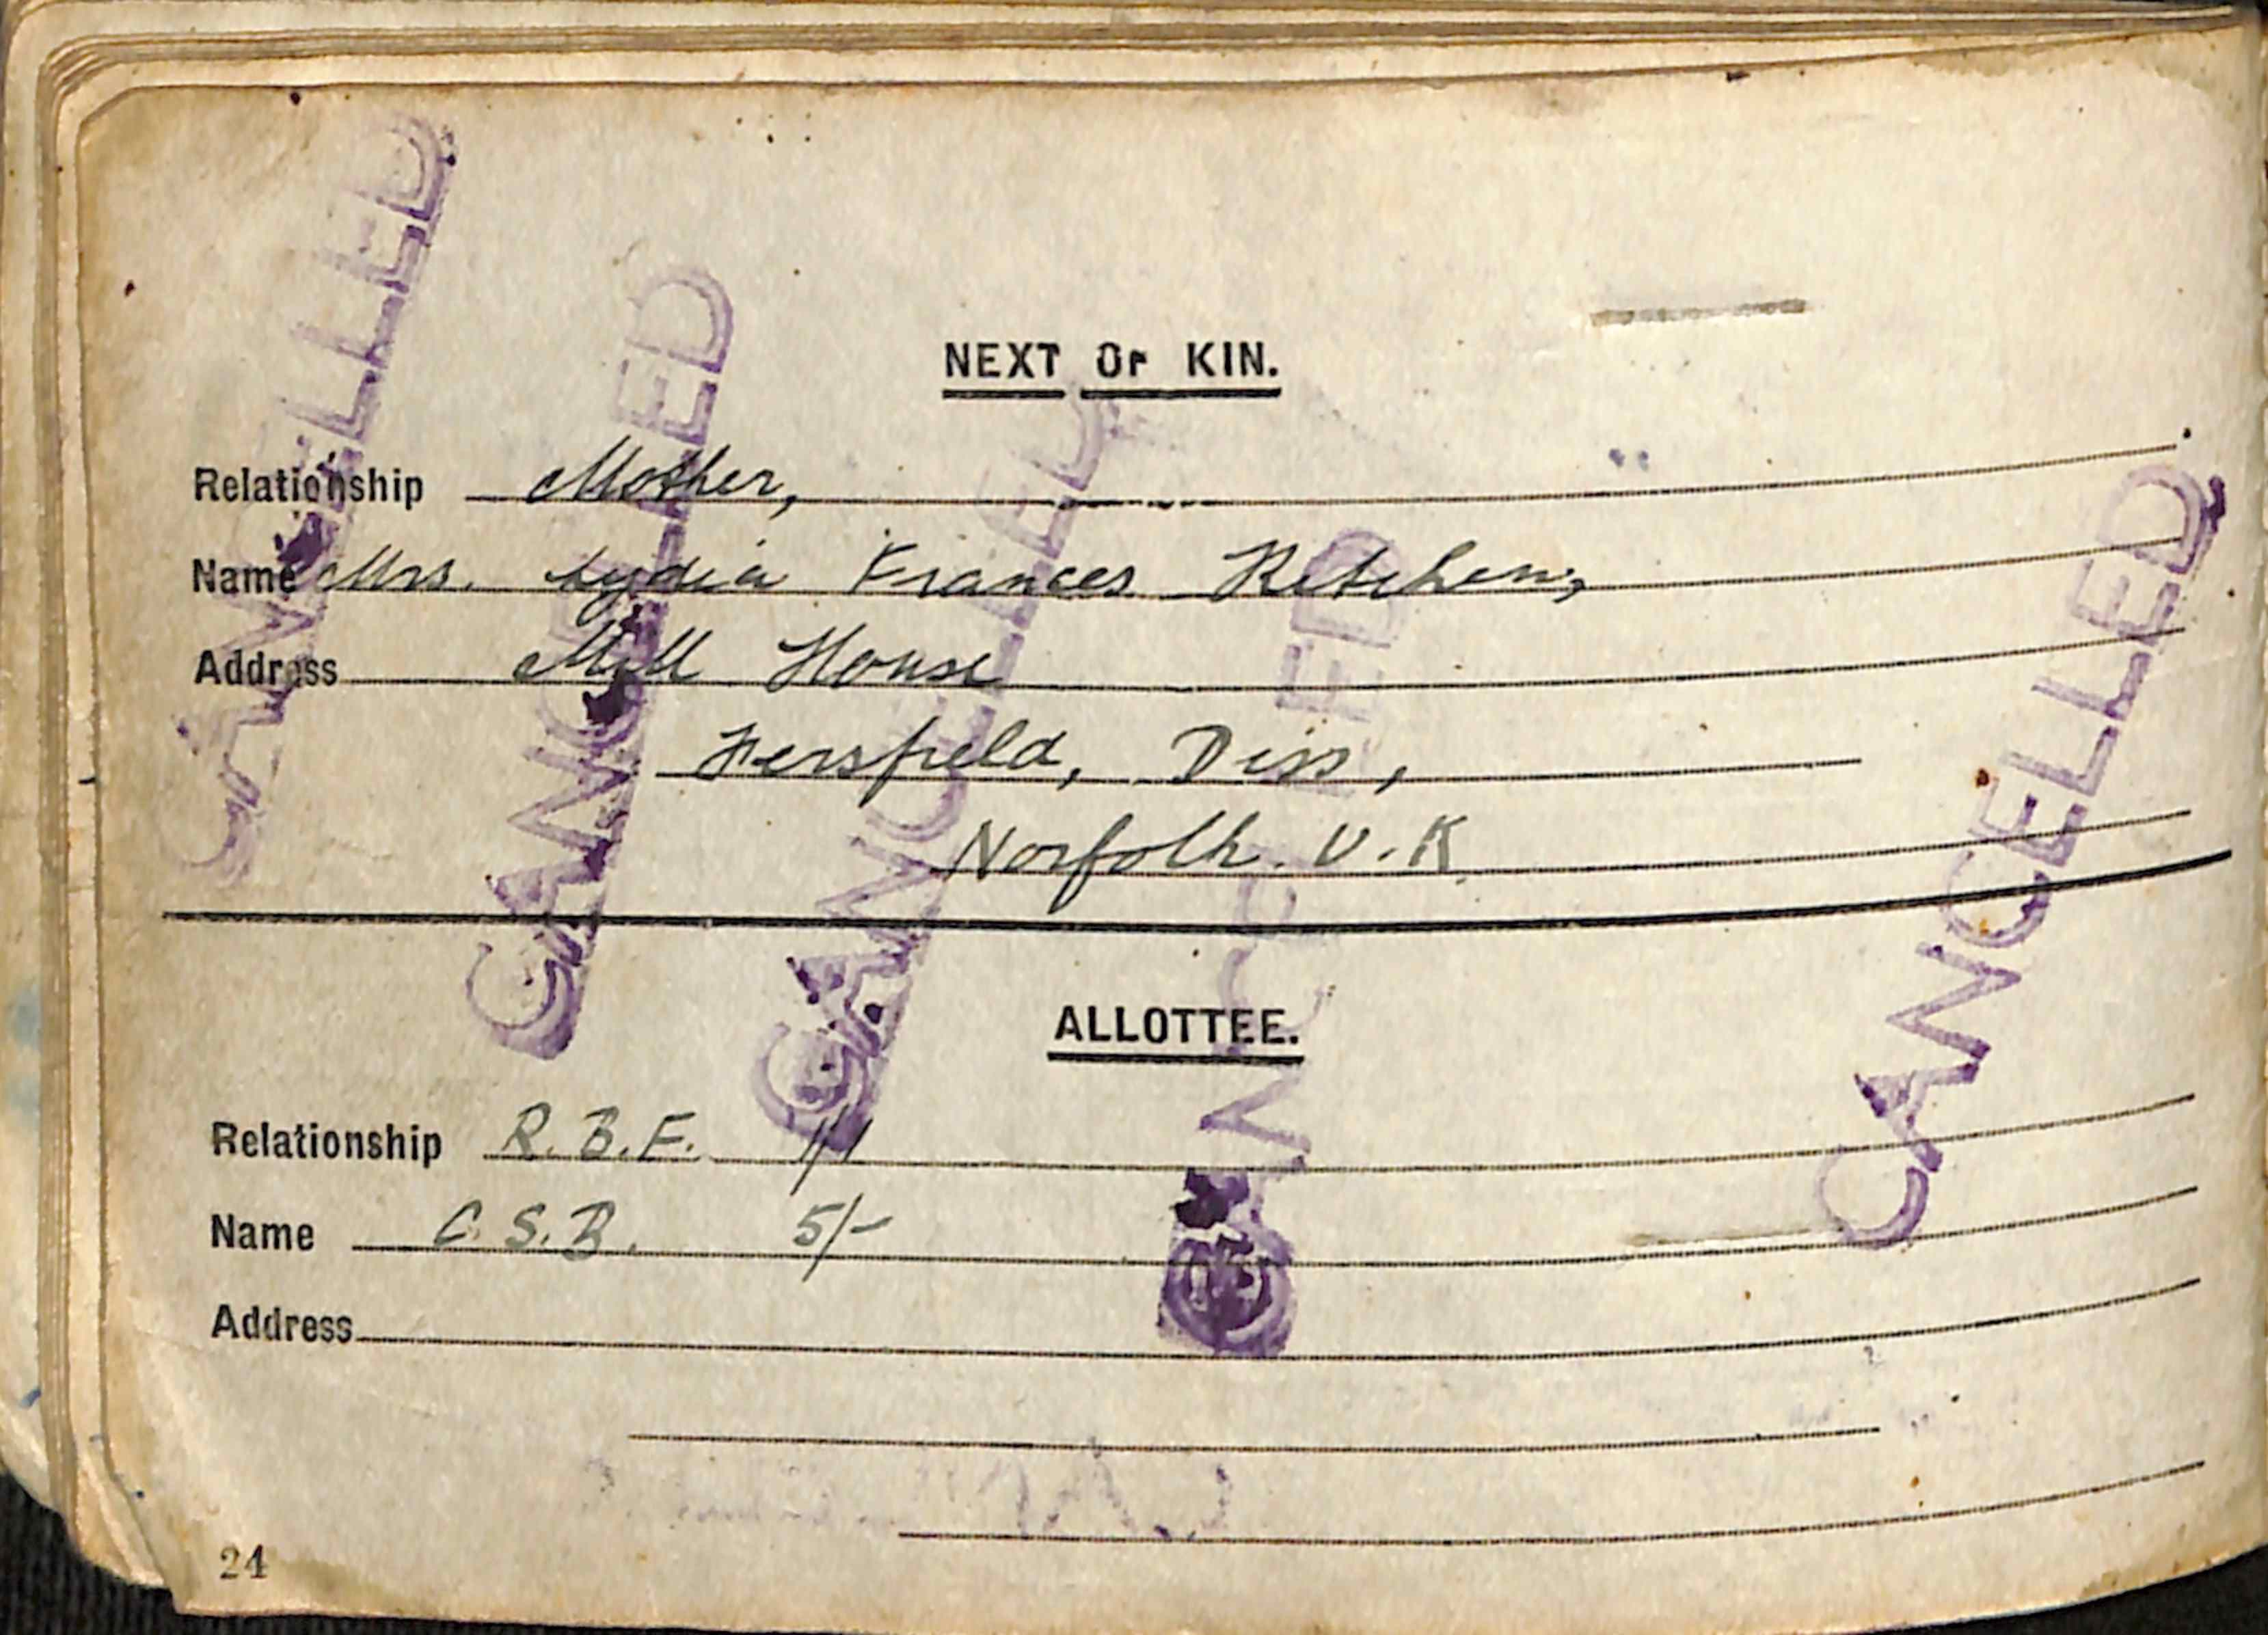 NEXT OF KIN.
Relationship Mother,
Name Mrs. Lydia Frances Ketchen,
Address Mill House
Fersfield, Diss,
Norfolk. U.K.
ALLOTTEE.
Relationship R.B.F. 1/1
Name C.S.B. 5/-
Address
24
CANCELLED
CANCELLED
CANCELLED
CANCELLED
CANCELLED